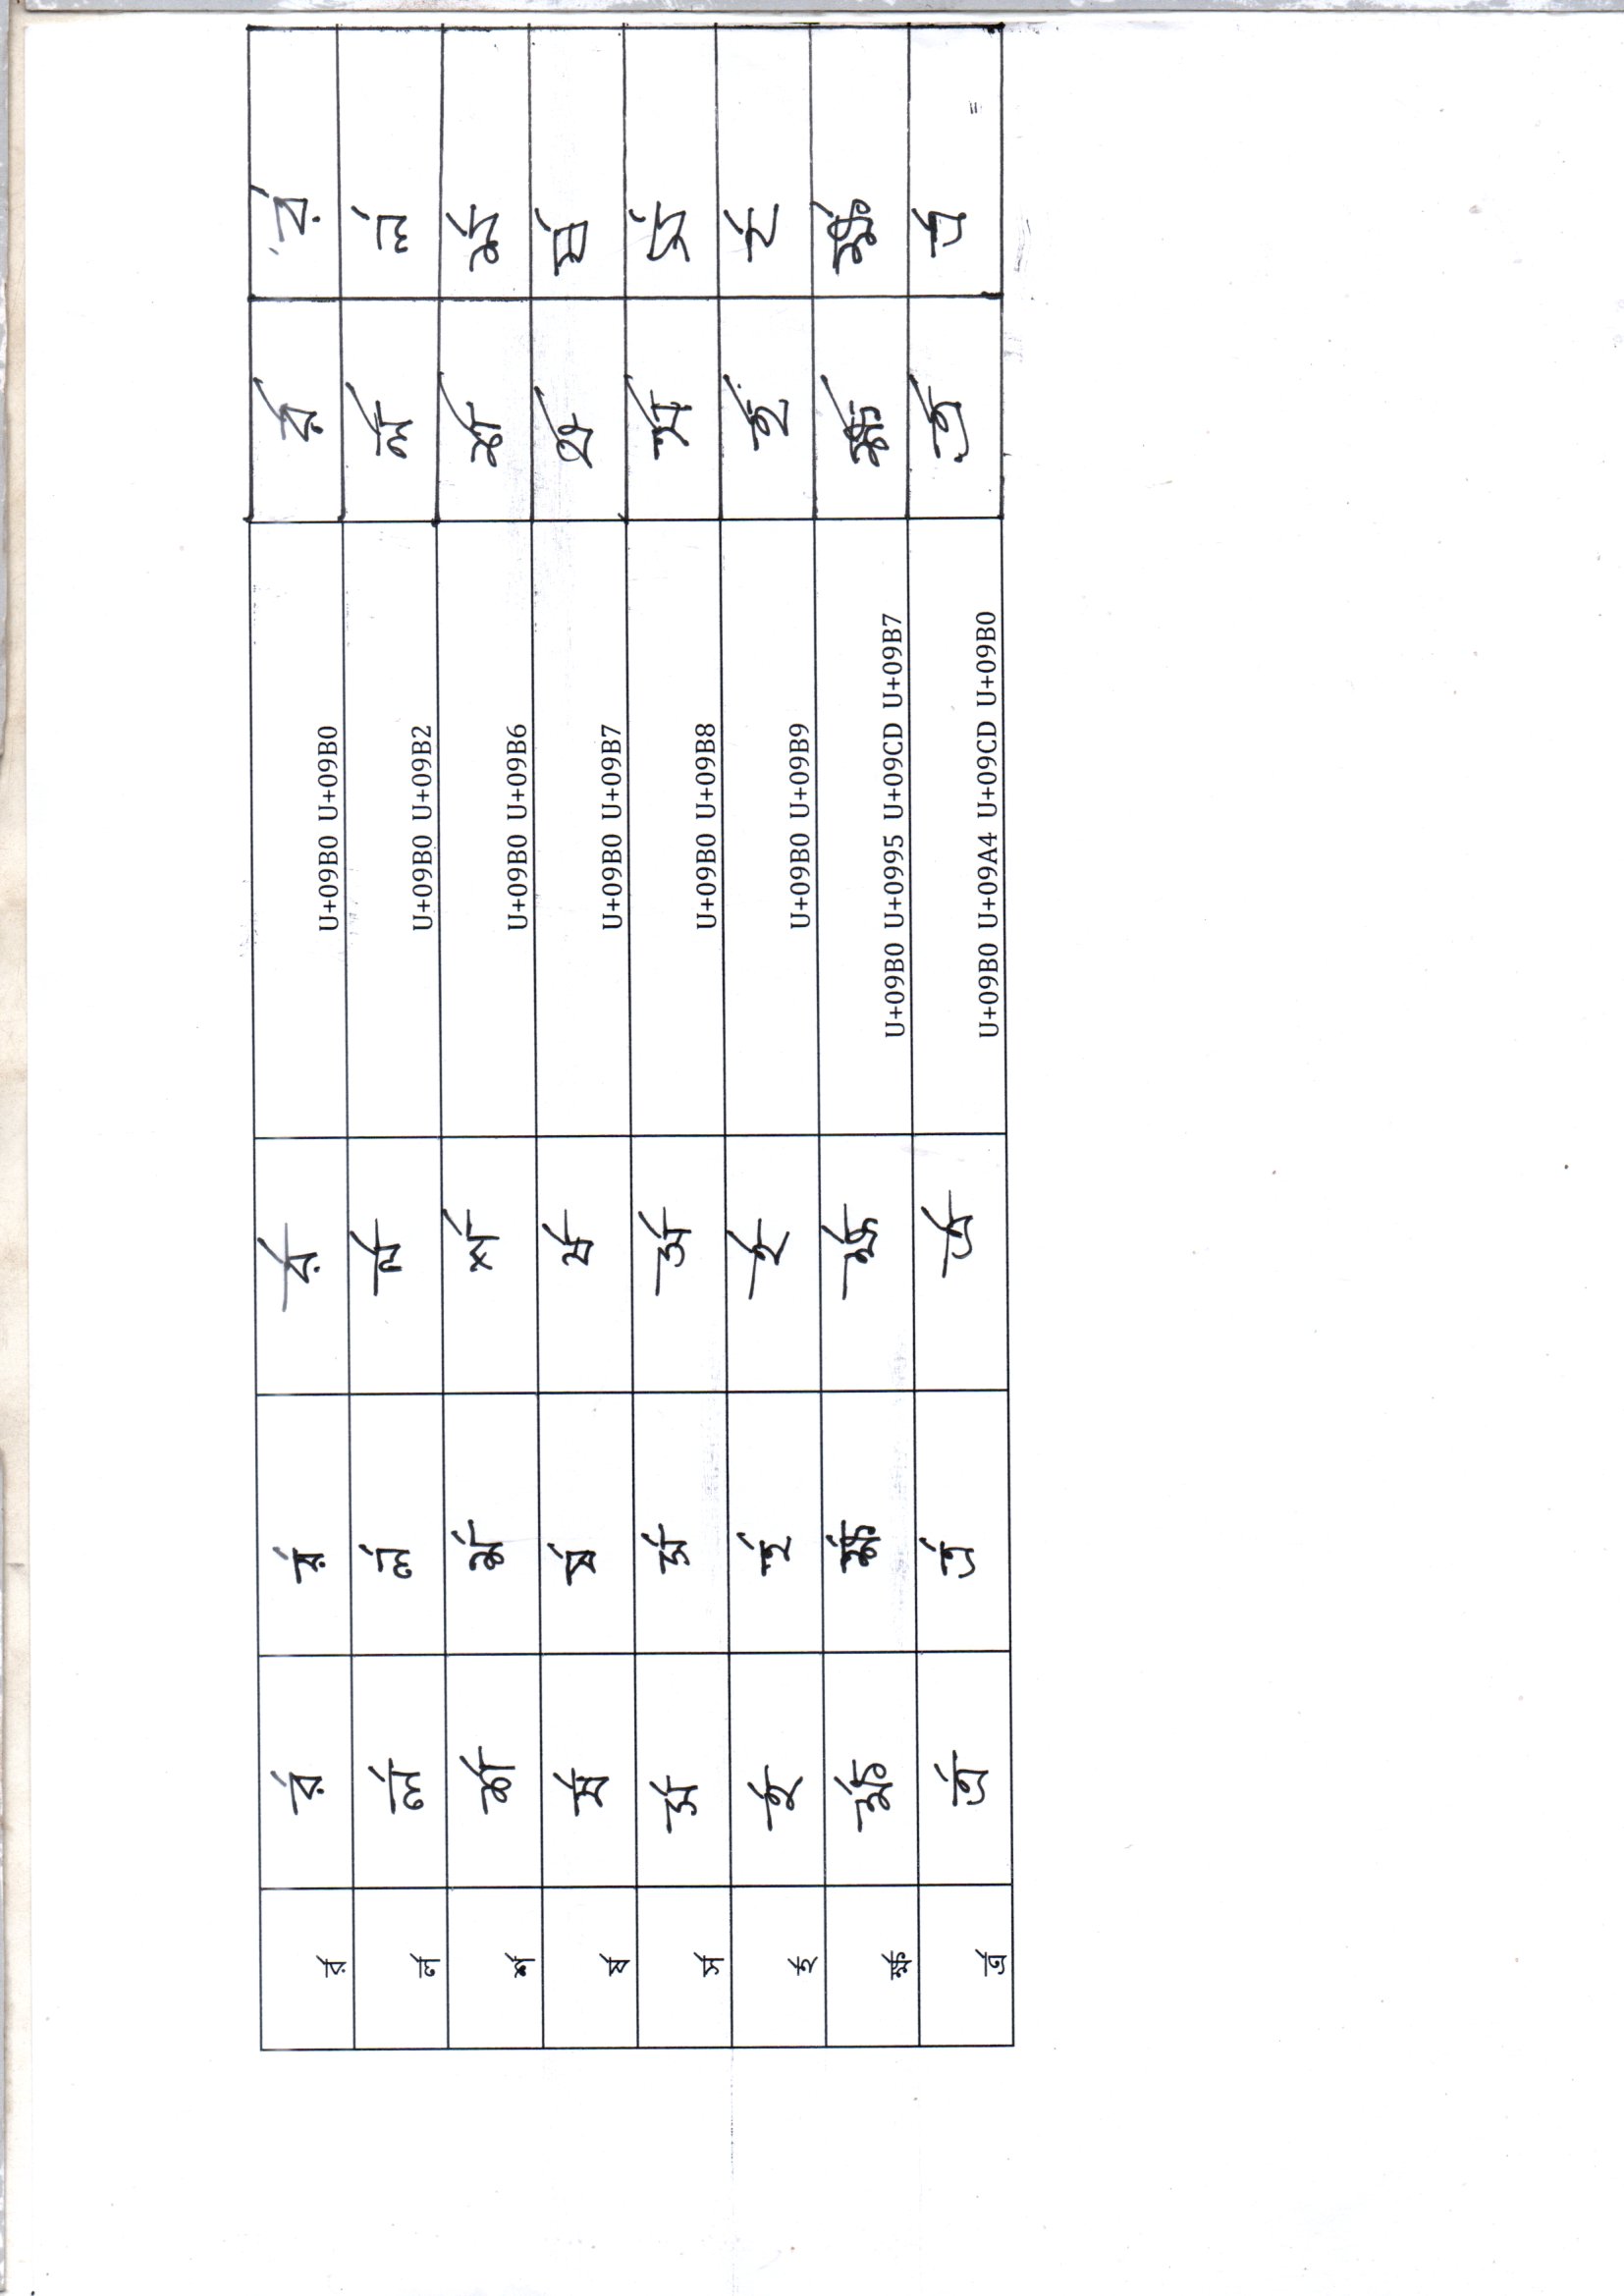 র্র র্র র্র র্র U+09B0 U+09B0 র্র র্র
র্ল র্ল র্ল র্ল U+09B0 U+09B2 র্ল র্ল
র্শ র্শ র্শ র্শ U+09B0 U+09B6 র্শ র্শ
র্ষ র্ষ র্ষ র্ষ U+09B0 U+09B7 র্ষ র্ষ
র্স র্স র্স র্স U+09B0 U+09B8 র্স র্স
র্হ র্হ র্হ র্হ U+09B0 U+09B9 র্হ র্হ
র্ক্ষ র্ক্ষ র্ক্ষ র্ক্ষ U+09B0 U+0995 U+09CD U+09B7 র্ক্ষ র্ক্ষ
র্ত্র র্ত্র র্ত্র র্ত্র U+09B0 U+09A4 U+09CD U+09B0 র্ত্র র্ত্র